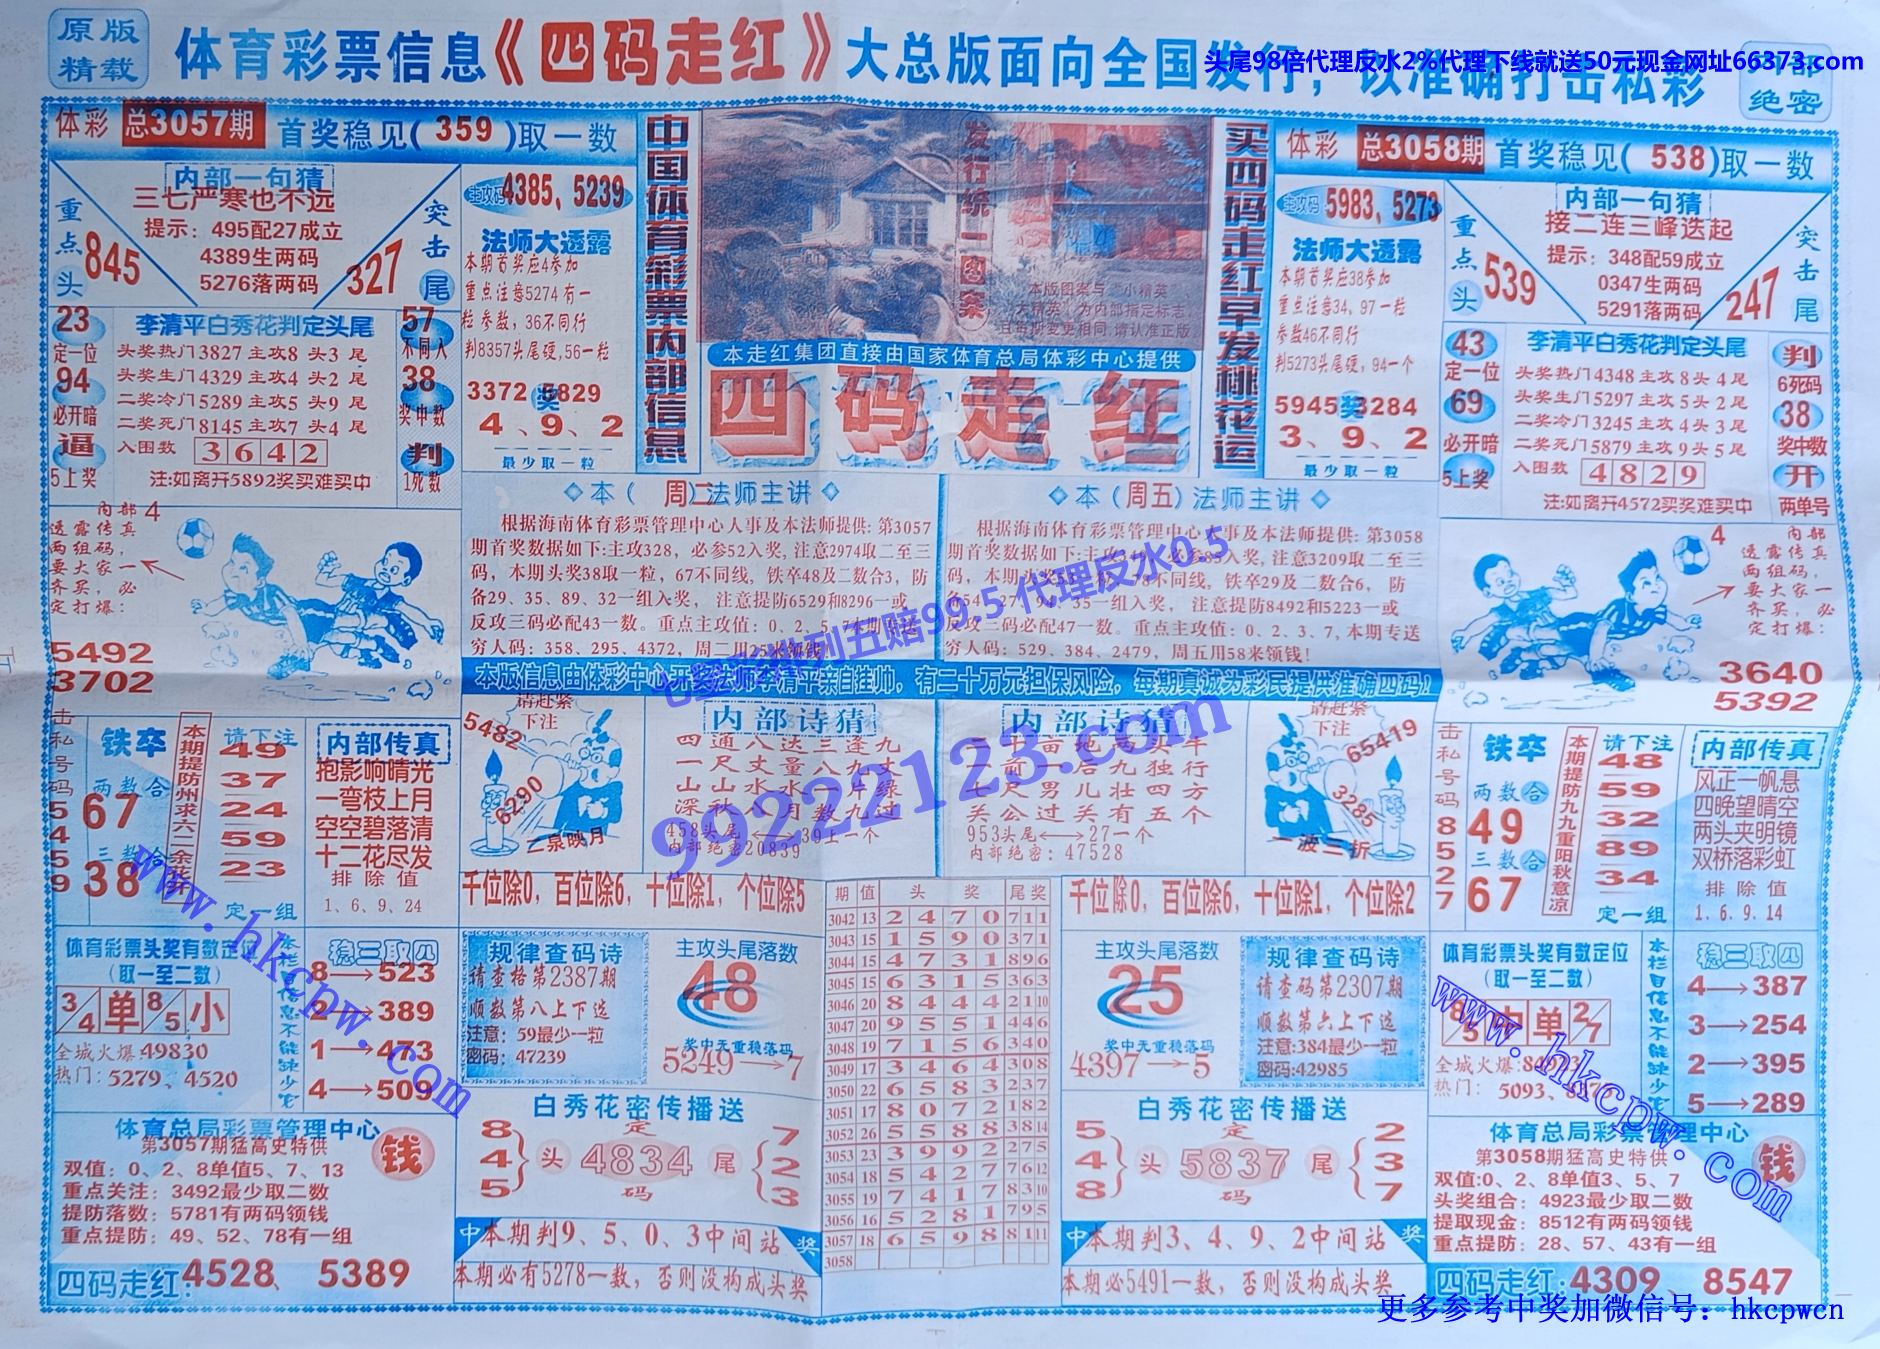 原版
精载
体育彩票信息《四码走红》大总版面向全国发行，以准确打击私彩
头尾98倍代理反水2%代理下线就送50元现金网址66373.com
绝密
体彩 总3057期 首奖稳见(359)取一数
内部一句猜
三七严寒也不远
提示：495配27成立
4389生两码
5276落两码
重点头
845
突击尾
327
主攻码 4385、5239
法师大透露
本期首奖应4参加
重点注意5274有一
粒参数，36不同行
判8357头尾硬，56一粒
3372 奖 5829
4、9、2
最少取一粒
23
定一位
94
必开暗
逼
5上奖
李清平白秀花判定头尾
头奖热门3827主攻8 头3 尾
头奖生门4329主攻4 头2 尾
二奖冷门5289主攻5 头9 尾
二奖死门8145主攻7 头4 尾
入围数 3642
注:如离开5892奖买难买中
57
不同入
38
奖中数
判
1死数
中国体育彩票内部信息
发行统一图案
本版图案与“小精英”
大精英”为内部指定标志,
且每期变更相同,请认准正版
本走红集团直接由国家体育总局体彩中心提供
四码走红
买四码走红早发桃花运
体彩 总3058期 首奖稳见(538)取一数
主攻码 5983、5273
法师大透露
本期首奖应38参加
重点注意34、97一粒
参数46不同行
判5273头尾硬，94一个
5945 奖 3284
3、9、2
最少取一粒
内部一句猜
接二连三峰迭起
提示：348配59成立
0347生两码
5291落两码
重点头
539
突击尾
247
43
定一位
69
必开暗
5上奖
李清平白秀花判定头尾
头奖热门4348主攻8头4尾
头奖生门5297主攻5头2尾
二奖冷门3245主攻4头3尾
二奖死门5879主攻9头5尾
入围数 4829
注:如离开4572买奖难买中
判
6死码
38
奖中数
开
两单号
内部
透露传真
两组码，
要大家一
齐买，必
定打爆：
4
5492
3702
本（周二）法师主讲
根据海南体育彩票管理中心人事及本法师提供: 第3057
期首奖数据如下:主攻328，必参52入奖, 注意2974取二至三
码，本期头奖38取一粒，67不同线，铁卒48及二数合3，防
备29、35、89、32一组入奖， 注意提防6529和8296一或
反攻三码必配43一数。重点主攻值：0、2、5、7本期专送
穷人码：358、295、4372，周二用25来领钱!
本（周五）法师主讲
根据海南体育彩票管理中心人事及本法师提供: 第3058
穷人码：529、384、2479，周五用58来领钱!
内部
透露传真
两组码，
要大家一
齐买，必
定打爆：
4
3640
5392
七星彩排列五赔99.5 代理反水0.5
99222123.com
本版信息由体彩中心开奖法师李清平亲自挂帅，有二十万元担保风险，每期真诚为彩民提供准确四码!
击私号码54599
铁卒
两数合
67
三数合
38
请下注
49
37
24
59
23
定一组
内部传真
抱影响晴光
一弯枝上月
空空碧落清
十二花尽发
排除值
1、6、9、24
请赶紧
下注
5482
6290
二泉映月
内部诗猜
四通八达三逢九
一尺丈量八九丈
458头尾⟷39上一个
内部绝密20839
内部诗猜
七尺男儿壮四方
关公过关有五个
953头尾⟷27一个
内部绝密：47528
请赶紧
下注
65419
3285
一波三折
击私号码88527
铁卒
两数合
49
三数合
67
本期提防九九重阳秋意凉
请下注
48
59
32
89
34
定一组
内部传真
风正一帆悬
四晚望晴空
两头夹明镜
双桥落彩虹
排除值
1.6.9.14
千位除0，百位除6，十位除1，个位除5
千位除0，百位除6，十位除1，个位除2
期 值 头奖 尾奖
3042 13 2470 711
3043 15 1590 371
3044 15 4731 896
3045 15 6315 363
3046 20 8444 2110
3047 20 9551 446
3048 19 7156 340
3049 17 3464 308
3050 22 6583 237
3051 17 8072 182
3052 26 5588 3814
3053 23 3992 275
3054 18 5427 7612
3055 19 7417 8310
3056 16 5281 795
3057 18 6598 811
3058
体育彩票头奖有数定位
(取一至二数)
3/4 单 8/5 小
全城火爆:49830
热门：5279、4520
稳三取四
8→523
2→389
1→473
4→509
本栏目信息不能缺少它
规律查码诗
请查格第2387期
顺数第八上下选
注意：59最少一粒
密码：47239
主攻头尾落数
48
奖中无重稳落码
5249→7
主攻头尾落数
25
奖中无重稳落码
4397→5
规律查码诗
请查码第2307期
顺数第六上下选
注意:384最少一粒
密码:42985
体育彩票头奖有数定位
(取一至二数)
8/5 中 单 2/7
热门：5093、
本栏目信息不能缺少它
稳三取四
4→387
3→254
2→395
5→289
体育总局彩票管理中心
第3057期猛高史特供
钱
双值：0、2、8单值5、7、13
重点关注：3492最少取二数
提防落数：5781有两码领钱
重点提防：49、52、78有一组
四码走红:4528、5389
白秀花密传播送
8 4 5 头 定 4834 码 尾 7 2 3
中 本期判9、5、0、3中间站 奖
本期必有5278一数，否则没构成头奖
白秀花密传播送
5 4 8 头 定 5837 码 尾 2 3 7
中 本期判3、4、9、2中间站 奖
本期必5491一数，否则没构成头奖
体育总局彩票管理中心
第3058期猛高史特供
钱
双值:0、2、8单值3、5、7
头奖组合：4923最少取二数
提取现金：8512有两码领钱
重点提防：28、57、43有一组
四码走红:4309、8547
www.hkcpw.com
www.hkcpw.com
更多参考中奖加微信号：hkcpwcn